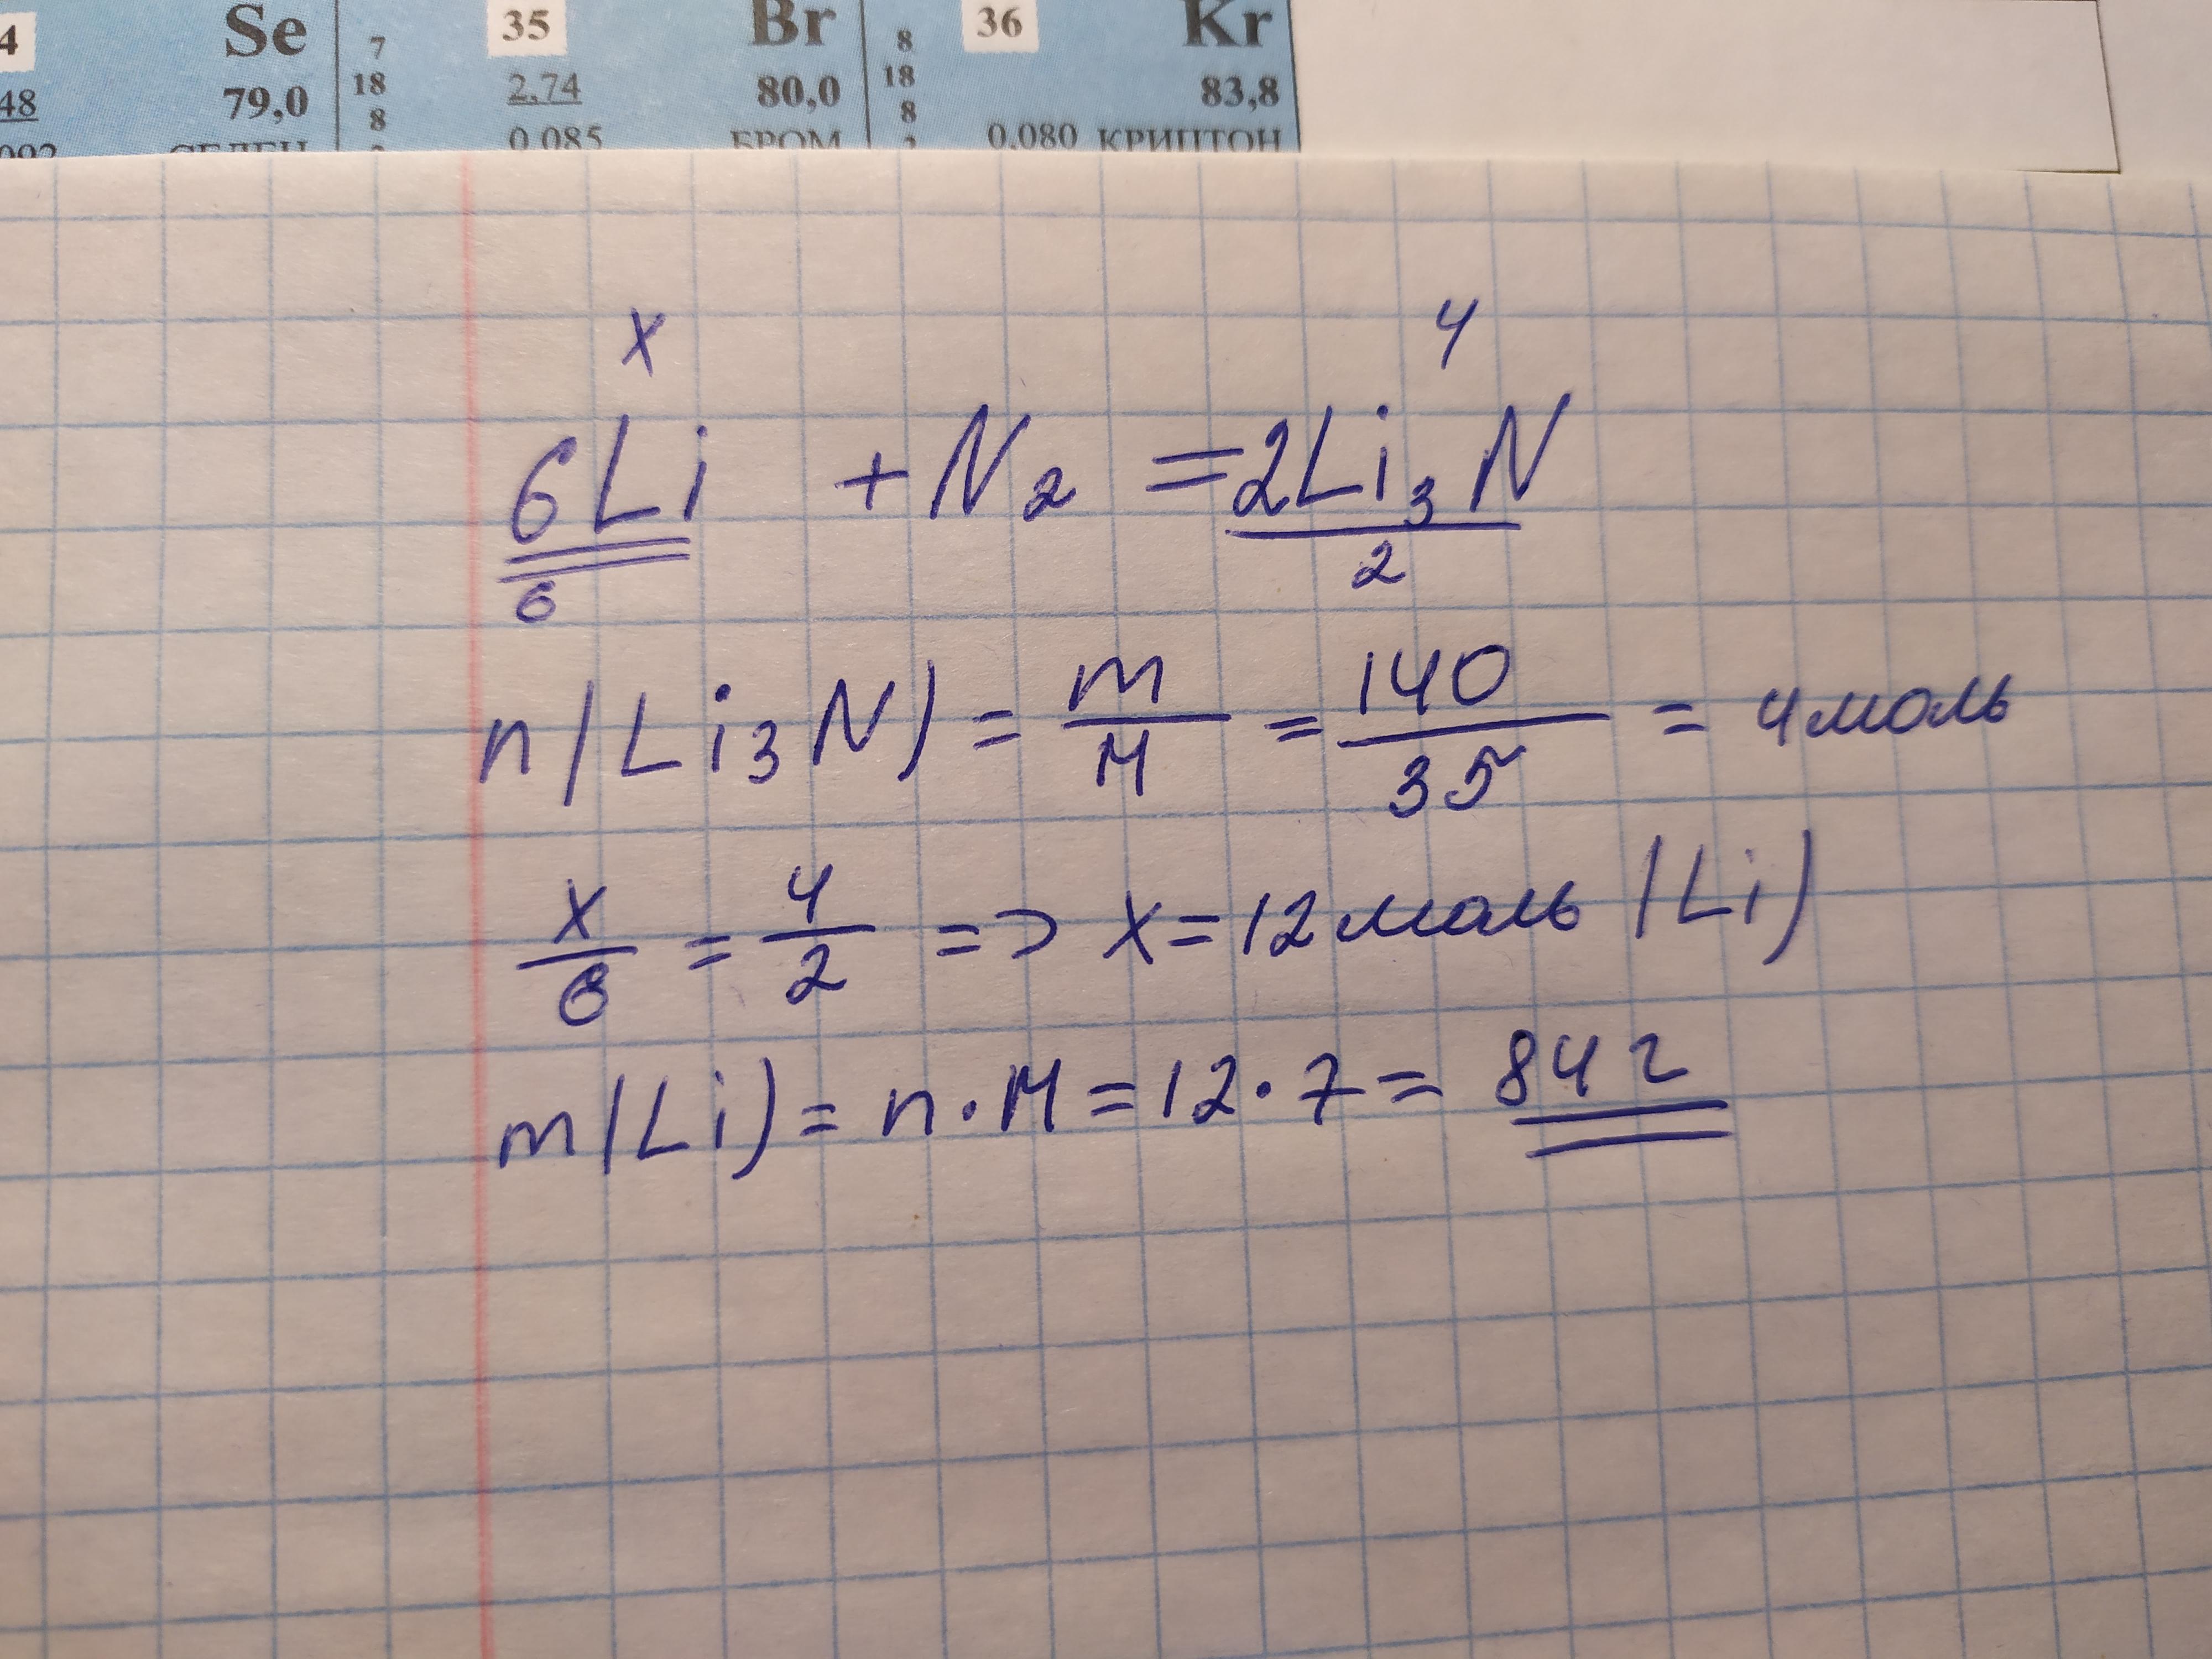 4 Se 7 35 Br 8 36 Kr
48 79,0 18 2,74 80,0 18 83,8
092 СЕЛЕН 8 0,085 БРОМ 8 0,080 КРИПТОН
x 4
6Li + N₂ = 2Li₃N
6 2
n(Li₃N) = m/M = 140/35 = 4 моль
x/6 = 4/2 => x = 12 моль (Li)
m(Li) = n · M = 12 · 7 = 84 г